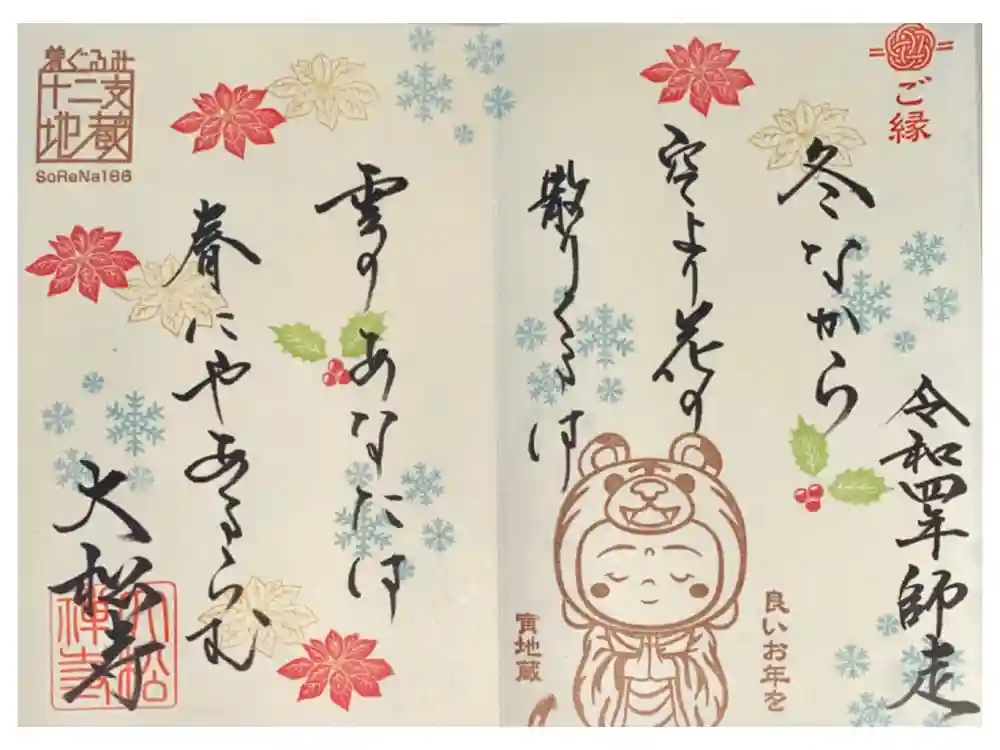 ご縁
令和四年師走
冬なから
空より花の
散りくるは
雲のあなたは
春にやあるらむ
大松寺
良いお年を
寅地蔵
着ぐるみ
十二支
地蔵
SoReNa166
大松
禅寺